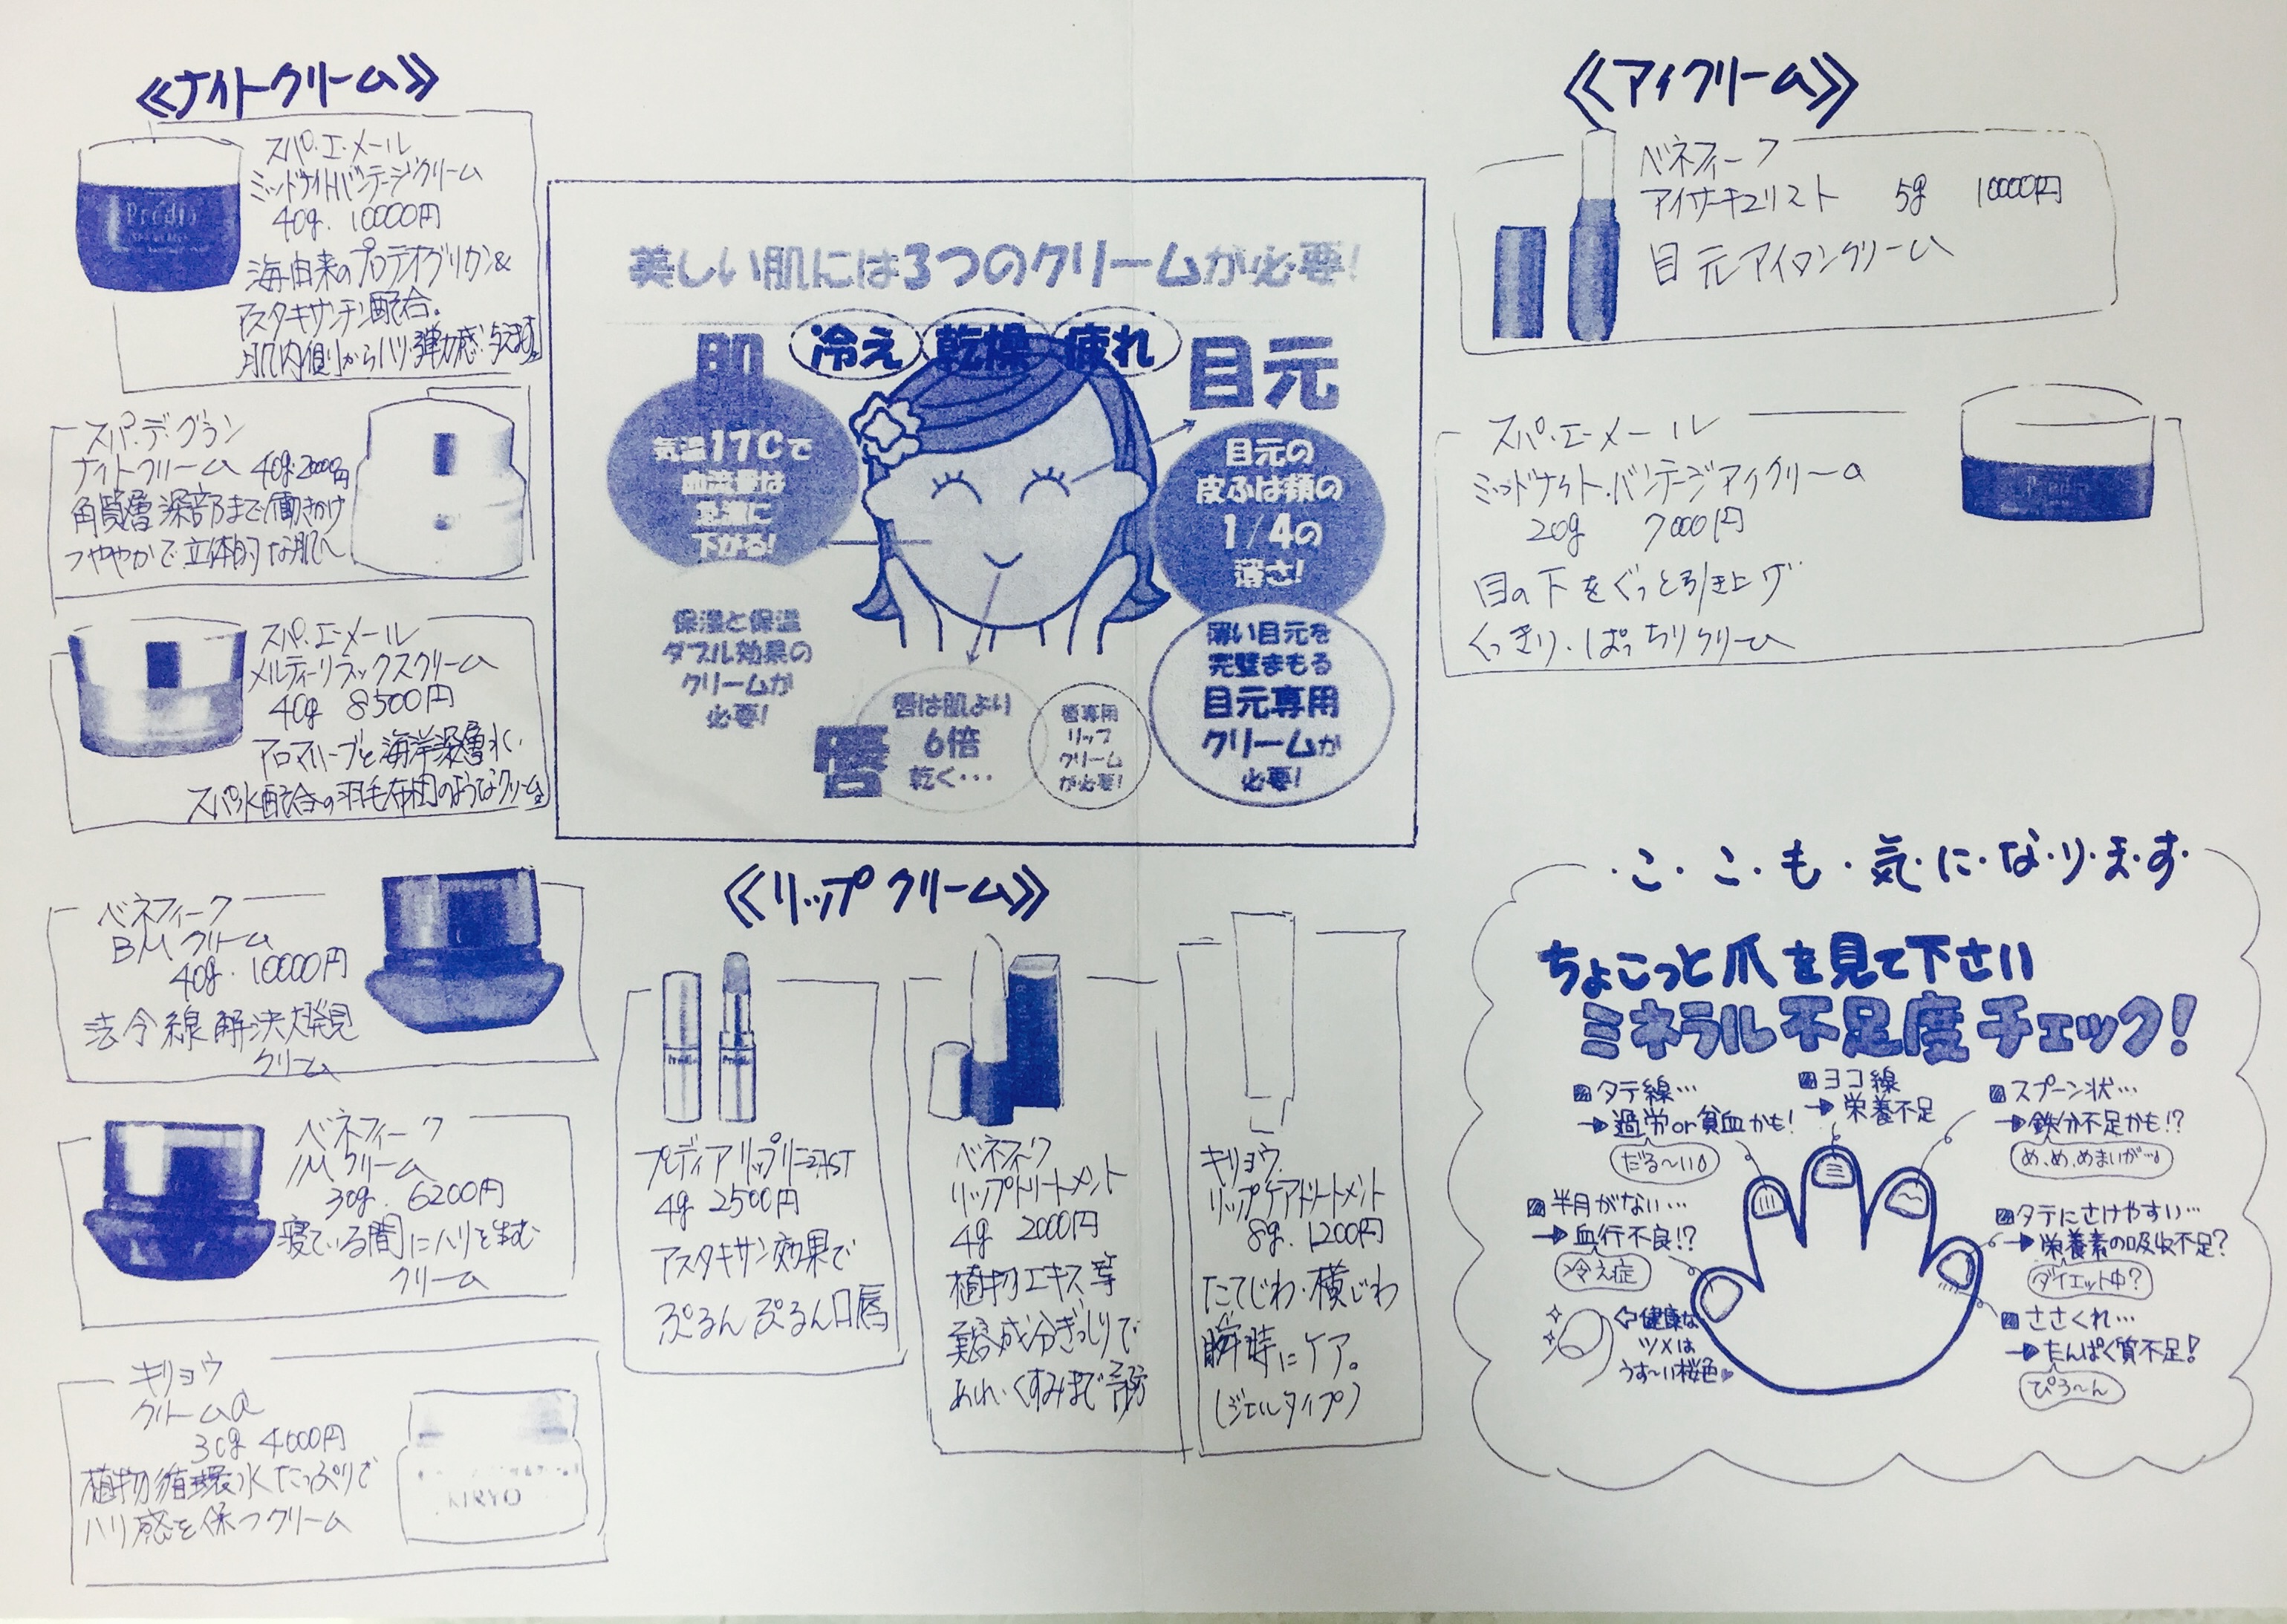 《ナイトクリーム》
スパ・エ・メール
ミッドナイトバンテージクリーム
40g. 10000円
海由来のプロテオグリカン&
アスタキサンチン配合。
肌内側からハリ・弾力感・与えます。
スパ・デ・グラン
ナイトクリーム 40g・2000円
角質層深部まで働きかけ
つややかで立体的な肌へ
スパ・エ・メール
メルティーリラックスクリーム
40g 8500円
アロマハーブと海洋深層水・
スパ水配合の羽毛布団のようなクリーム
ベネフィーク
BMクリーム
40g・10000円
法令線解決大発見
クリーム
ベネフィーク
IMクリーム
30g. 6200円
寝ている間にハリを生む
クリーム
キリョウ
クリームa
30g 4000円
植物循環水たっぷりで
ハリ感を保つクリーム
KIRYO
美しい肌には3つのクリームが必要!
冷え 乾燥 疲れ
肌
気温17Cで
血流量は
急激に
下がる!
保湿と保温
ダブル効果の
クリームが
必要!
目元
目元の
皮ふは頬の
1/4の
薄さ!
薄い目元を
完璧まもる
目元専用
クリームが
必要!
唇
唇は肌より
6倍
乾く・・・
唇専用
リップ
クリーム
が必要!
《リップクリーム》
プレディア リップリニュアルST
4g 2500円
アスタキサン効果で
ぷるんぷるん口唇
ベネフィーク
リップトリートメント
4g 2000円
植物エキス等
美容成分ぎっしりで
あれ・くすみまで予防
キリョウ
リップケアトリートメント
8g. 1200円
たてじわ・横じわ
瞬時にケア。
(ジェルタイプ)
《アイクリーム》
ベネフィーク
アイサーキュリスト 5g 10000円
目元アイロンクリーム
スパ・エ・メール
ミッドナイト・バンテージアイクリーム
20g 7000円
目の下をぐっと引き上げ
くっきり・ぱっちりクリーム
・こ・こ・も・気・に・な・り・ま・す・
ちょこっと爪を見て下さい
ミネラル不足度チェック!
タテ線…
→過労or貧血かも!
だる〜い
ヨコ線
→栄養不足
スプーン状…
→鉄分不足かも!?
め、め、めまいが…
半月がない…
→血行不良!?
冷え症
タテにさけやすい…
→栄養素の吸収不足?
ダイエット中?
ささくれ…
→たんぱく質不足!
ぴろ〜ん
⇦健康な
ツメは
うす〜い桜色♥